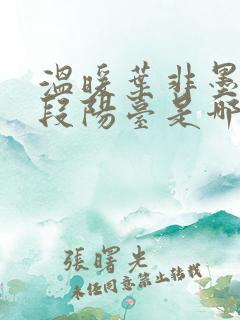 溫暖葉非墨
段陽臺是哪
張曙光
未任同意禁止转载